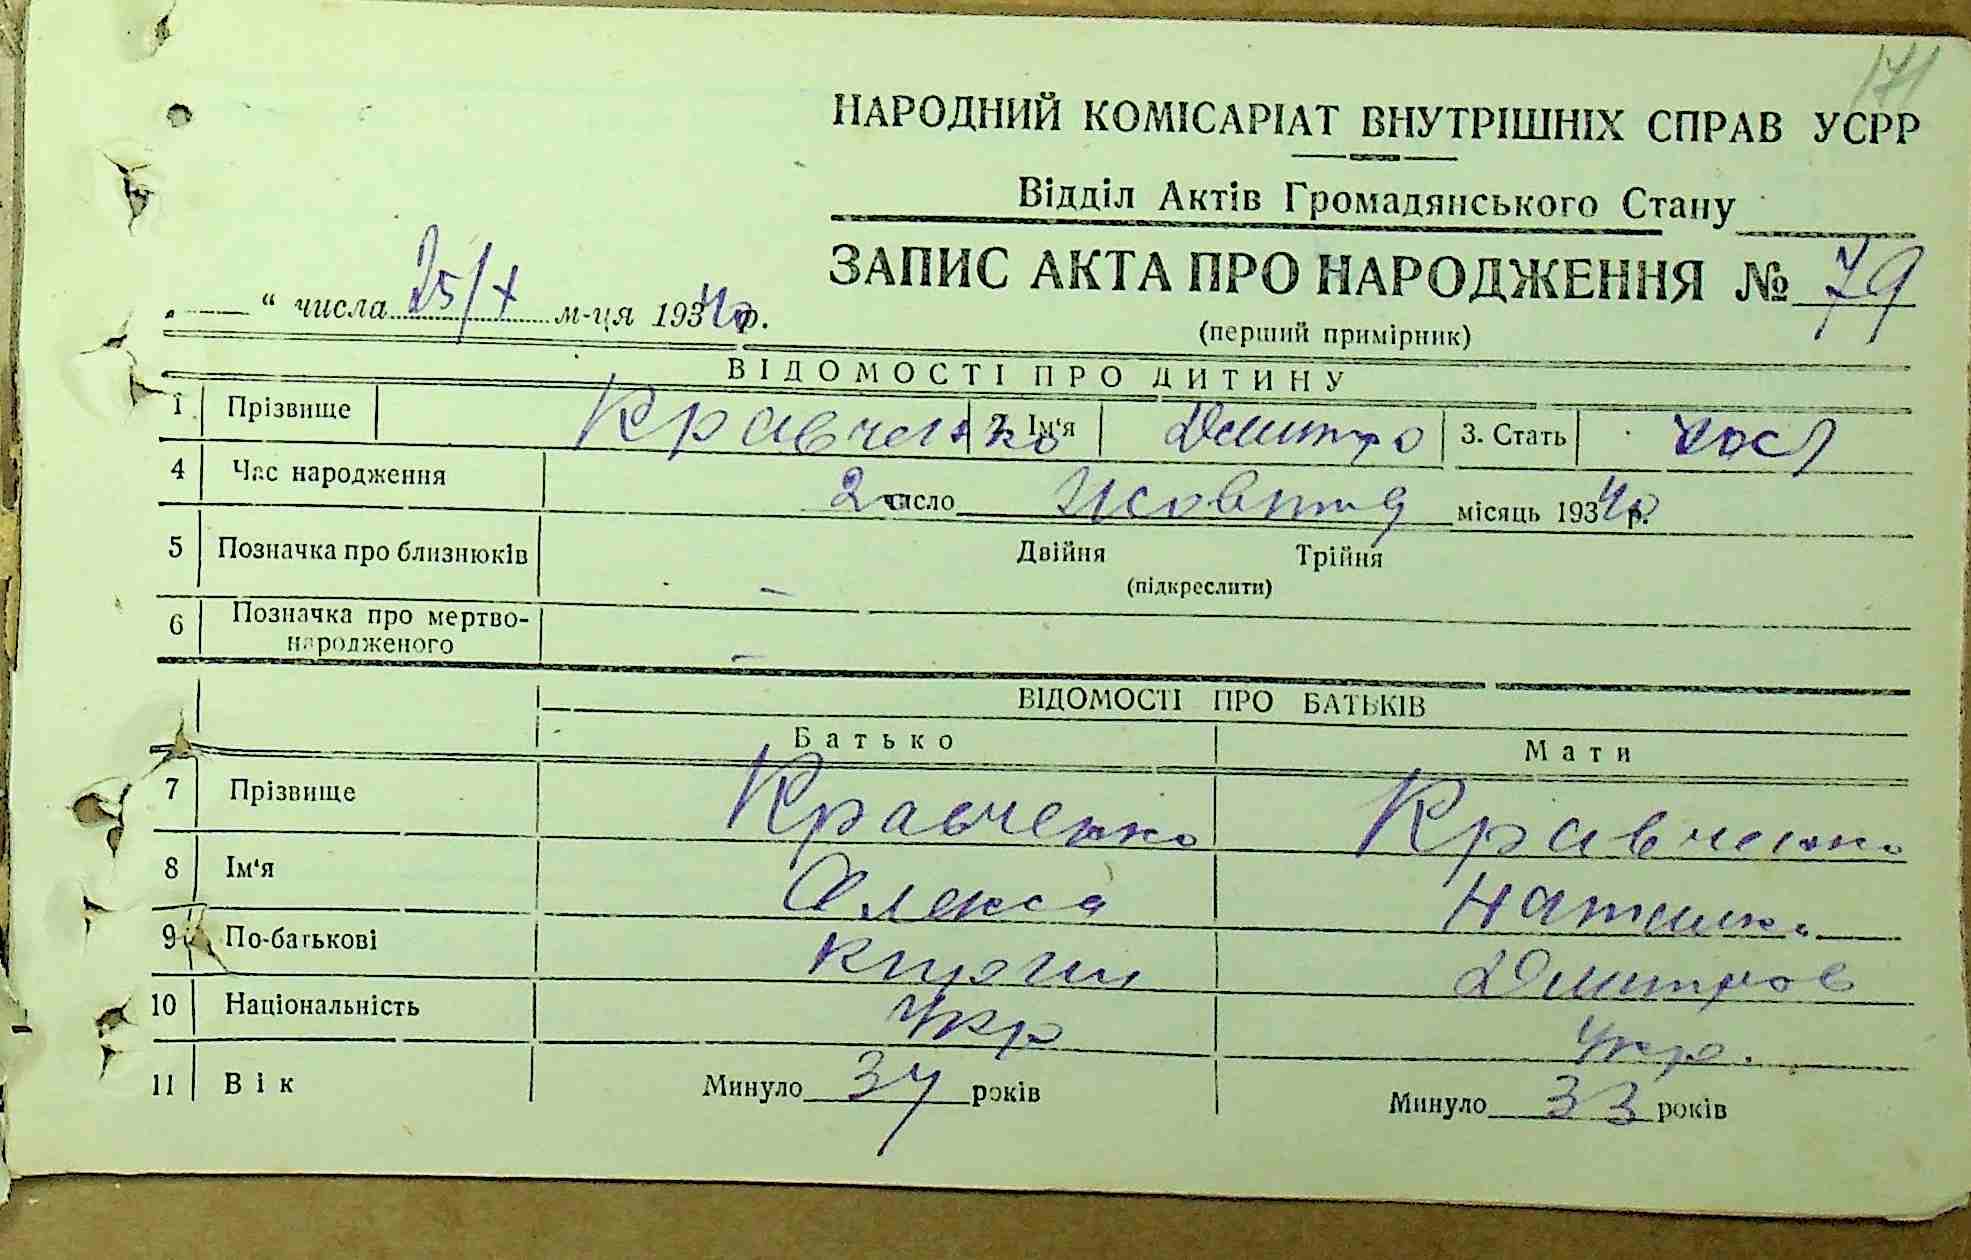 171
НАРОДНИЙ КОМІСАРІАТ ВНУТРІШНІХ СПРАВ УСРР
Відділ Актів Громадянського Стану
ЗАПИС АКТА ПРО НАРОДЖЕННЯ № 79
„ “ числа 25/X м-ця 193 40 р.
(перший примірник)
ВІДОМОСТІ ПРО ДИТИНУ
1 Прізвище Кравченко 2. Ім'я Дмитро 3. Стать чол
4 Час народження 2 число Жовтня місяць 193 40 р.
5 Позначка про близнюків Двійня Трійня
(підкреслити)
6 Позначка про мертво-
народженого
ВІДОМОСТІ ПРО БАТЬКІВ
Батько Мати
7 Прізвище Кравченко Кравченко
8 Ім'я Олекса
9 По-батькові Дмитров
10 Національність Укр Укр.
11 Вік Минуло 37 років Минуло 33 років